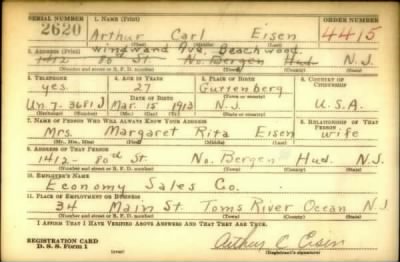 SERIAL NUMBER 1. NAME (Print) ORDER NUMBER
2620 Arthur Carl Eisen 4415
(First) (Middle) (Last)
2. ADDRESS (Print) Wingward Ave, Beachwood
1412 80 St. No. Bergen Hud N.J.
(Number and street or R. F. D. number) (Town) (County) (State)
3. TELEPHONE 4. AGE IN YEARS 5. PLACE OF BIRTH 6. COUNTRY OF CITIZENSHIP
yes 27 Guttenberg
DATE OF BIRTH (Town or county)
Un. 7-3681J Mar. 15 1913 N.J. U.S.A.
(Exchange) (Number) (Mo.) (Day) (Yr.) (State or country)
7. NAME OF PERSON WHO WILL ALWAYS KNOW YOUR ADDRESS 8. RELATIONSHIP OF THAT PERSON
Mrs. Margaret Rita Eisen wife
(Mr., Mrs., Miss) (First) (Middle) (Last)
9. ADDRESS OF THAT PERSON
1412- 80th St. No. Bergen Hud. N.J.
(Number and street or R. F. D. number) (Town) (County) (State)
10. EMPLOYER'S NAME
Economy Sales Co.
11. PLACE OF EMPLOYMENT OR BUSINESS
34 Main St Toms River Ocean N.J.
(Number and street or R. F. D. number) (Town) (County) (State)
I AFFIRM THAT I HAVE VERIFIED ABOVE ANSWERS AND THAT THEY ARE TRUE.
REGISTRATION CARD
D. S. S. Form 1 (over) Arthur C Eisen
(Registrant's signature)